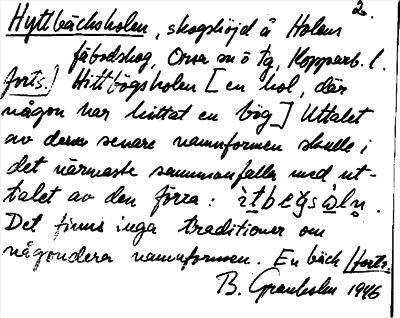 2.
Hyttbäcksholen, skogshöjd å Holens
fäbodskog, Orsa sn ö tg, Kopparb. l.
forts.] Hittbögsholen [en hol, där
någon har hittat en bög] Uttalet
av denna senare namnformen skulle i
det närmaste sammanfalla med ut-
talet av den förra:
Det finns inga traditioner om
någondera namnformen. En bäck /forts.
B. Granholm 1946